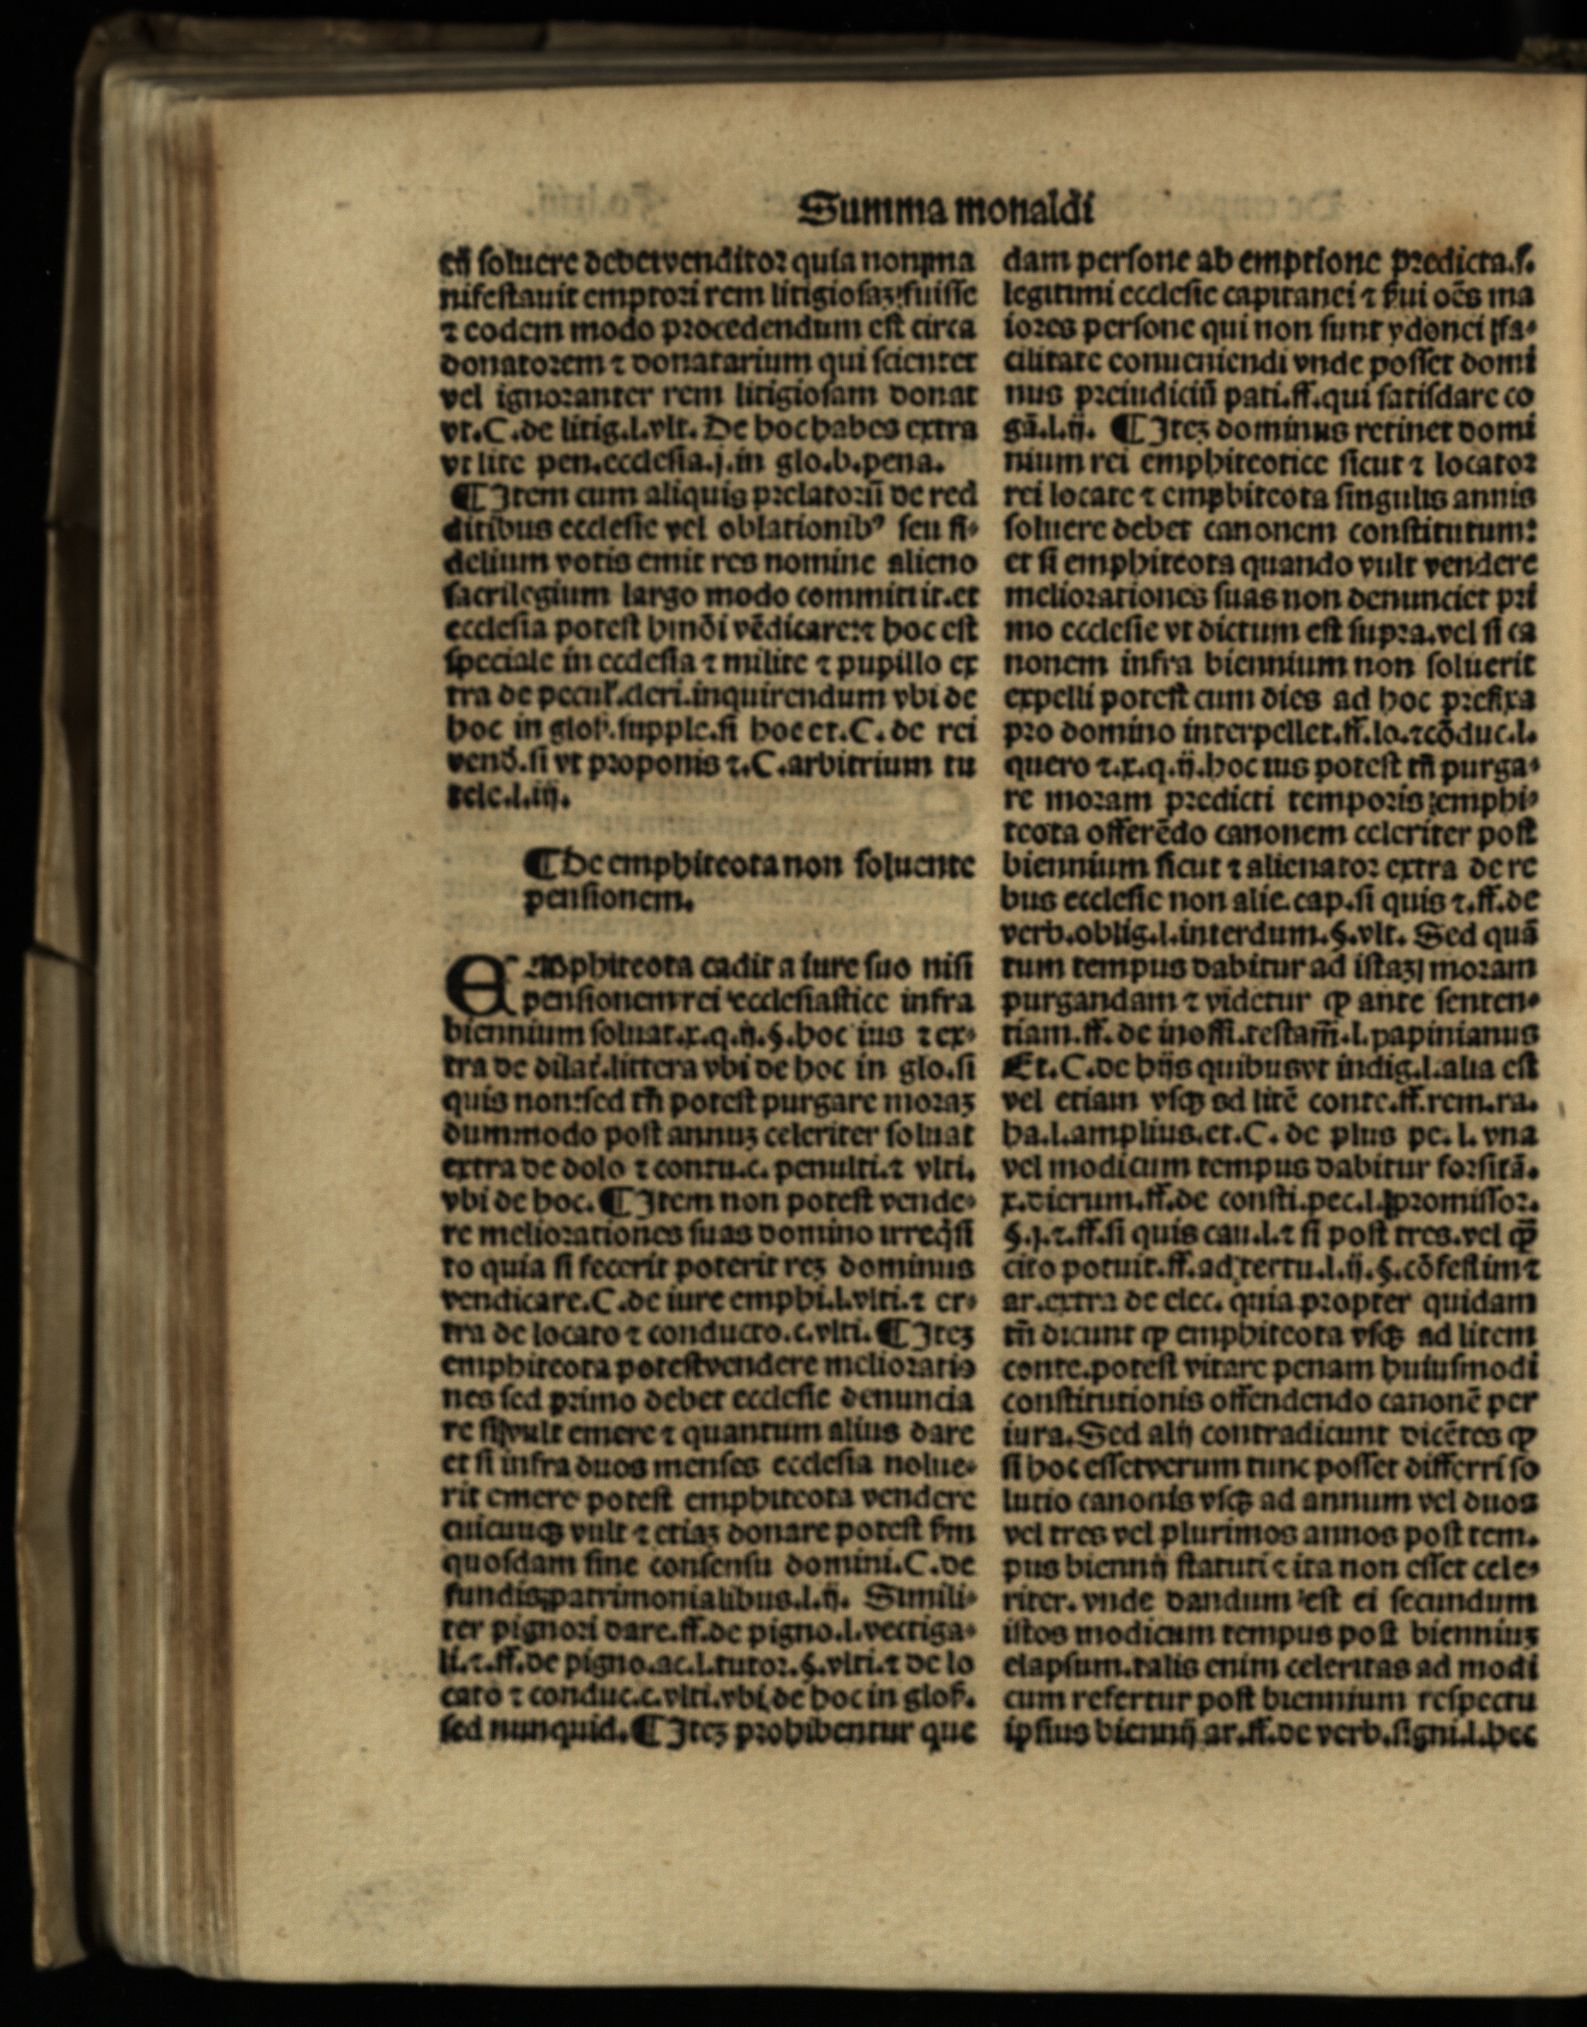 Summa monaldi
eū soluere debet venditor quia non ma
nifestauit emptori rem litigiosaz fuisse
⁊ eodem modo procedendum est circa
donatorem ⁊ donatarium qui scienter
vel ignoranter rem litigiosam donat
vt.C.de litig.l.vlt. De hoc habes extra
vt lite pen.ecclesia.j.in glo.b.pena.
¶Item cum aliquis prelatorū de red
ditibus ecclesie vel oblationibꝰ seu fi-
delium votis emit res nomine alieno
sacrilegium largo modo committit.et
ecclesia potest hmōi vēdicare:⁊ hoc est
speciale in ecclesia ⁊ milite ⁊ pupillo ex
tra de pecul'.cleri.inquirendum vbi de
hoc in glos'.supple.si hoc et.C.de rei
vend'.si vt proponis ⁊.C.arbitrium tu
tele.l.iij.
¶De emphiteota non soluente
pensionem.
EMphiteota cadit a iure suo nisi
pensionem rei ecclesiastice infra
biennium soluat.x.q.ij.§.hoc ius ⁊ ex-
tra de dilat'.littera vbi de hoc in glo.si
quis non:sed tn̄ potest purgare moraz
dummodo post annuz celeriter soluat
extra de dolo ⁊ contu.c. penulti.⁊ vlti.
vbi de hoc.¶Item non potest vende-
re meliorationes suas domino irreq̇si
to quia si fecerit poterit rez dominus
vendicare.C.de iure emphi.l.vlti.⁊ er-
tra de locato ⁊ conducto.c.vlti.¶Itez
emphiteota potest vendere melioratio
nes sed primo debet ecclesie denuncia
re si vult emere ⁊ quantum alius dare
et si infra duos menses ecclesia nolue-
rit emere potest emphiteota vendere
cuicunqꝫ vult ⁊ etiaz donare potest fm
quosdam sine consensu domini.C.de
fundis patrimonialibus.l.ij. Simili-
ter pignori dare.ff.de pigno.l.vectiga-
li.⁊.ff.de pigno.ac.l.tutor.§.vlti.⁊ de lo
cato ⁊ conduc.c.vlti.vbi de hoc in glos'.
sed nunquid.¶Itez prohibentur que
dam persone ab emptione predicta.s.
legitimi ecclesie capitanei ⁊ ẜui oēs ma
iores persone qui non sunt ydonei fa-
cilitate conueniendi vnde posset domi
nus preiudiciū pati.ff.qui satisdare co
gā.l.ij. ¶Itez dominus retinet domi
nium rei emphiteotice sicut ⁊ locator
rei locate ⁊ emphiteota singulis annis
soluere debet canonem constitutum:
et si emphiteota quando vult vendere
meliorationes suas non denunciet pri
mo ecclesie vt dictum est supra.vel si ca
nonem infra biennium non soluerit
expelli potest cum dies ad hoc prefixa
pro domino interpellet.ff.lo.⁊cōduc.l.
quero ⁊.x.q.ij.hoc ius potest tn̄ purga-
re moram predicti temporis emphi-
teota offerēdo canonem celeriter post
biennium sicut ⁊ alienator extra de re
bus ecclesie non alie.cap.si quis ⁊.ff.de
verb.oblig.l.interdum.§.vlt. Sed quā
tum tempus dabitur ad istaz moram
purgandam ⁊ videtur ꝙ ante senten-
tiam.ff.de inoffi.testam̄.l.papinianus
Et.C.de hijs quibus vt indig.l.alia est
vel etiam vsqꝫ ad litē conte.ff.rem.ra.
ha.l.amplius.et.C. de plus pe.l. vna
vel modicum tempus dabitur forsitā.
x.dierum.ff.de consti.pec.l.promissor.
§.j.⁊.ff.si quis cau.l.⁊ si post tres.vel ꝙ̄
cito potuit.ff.ad tertu.l.ij.§.cōfestim⁊
ar.extra de elec. quia propter quidam
tn̄ dicunt ꝙ emphiteota vsqꝫ ad litem
conte.potest vitare penam huiusmodi
constitutionis offendendo canonē per
iura.Sed alij contradicunt dicētes ꝙ
si hoc esset verum tunc posset differri so
lutio canonis vsqꝫ ad annum vel duos
vel tres vel plurimos annos post tem-
pus biennij statuti ⁊ ita non esset cele-
riter. vnde dandum est ei secundum
istos modicum tempus post bienniuz
elapsum.talis enim celeritas ad modi
cum refertur post biennium respectu
ipsius biennij ar.ff.de verb.signi.l.hec